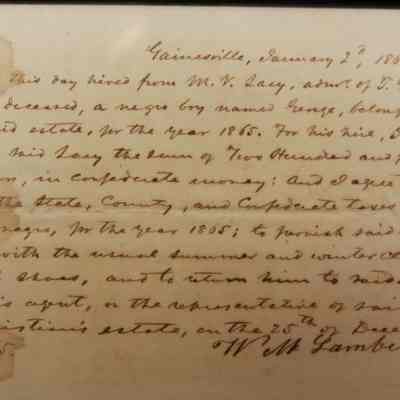 Gainesville, January 2d, 186
this day hired from M. V. Lacy, admr. of T.
deceased, a negro boy named George, belong
estate, for the year 1865. For his hire, I
said Lacy the sum of Two Hundred and
in Confederate money: And I agree
the State, County, and Confederate taxes
negro, for the year 1865; to furnish said
with the usual summer and winter cl
shoes, and to return him to said
agent, or the representative of sai
istian's estate, on the 25th of Dece
5.
W. M. Lambe